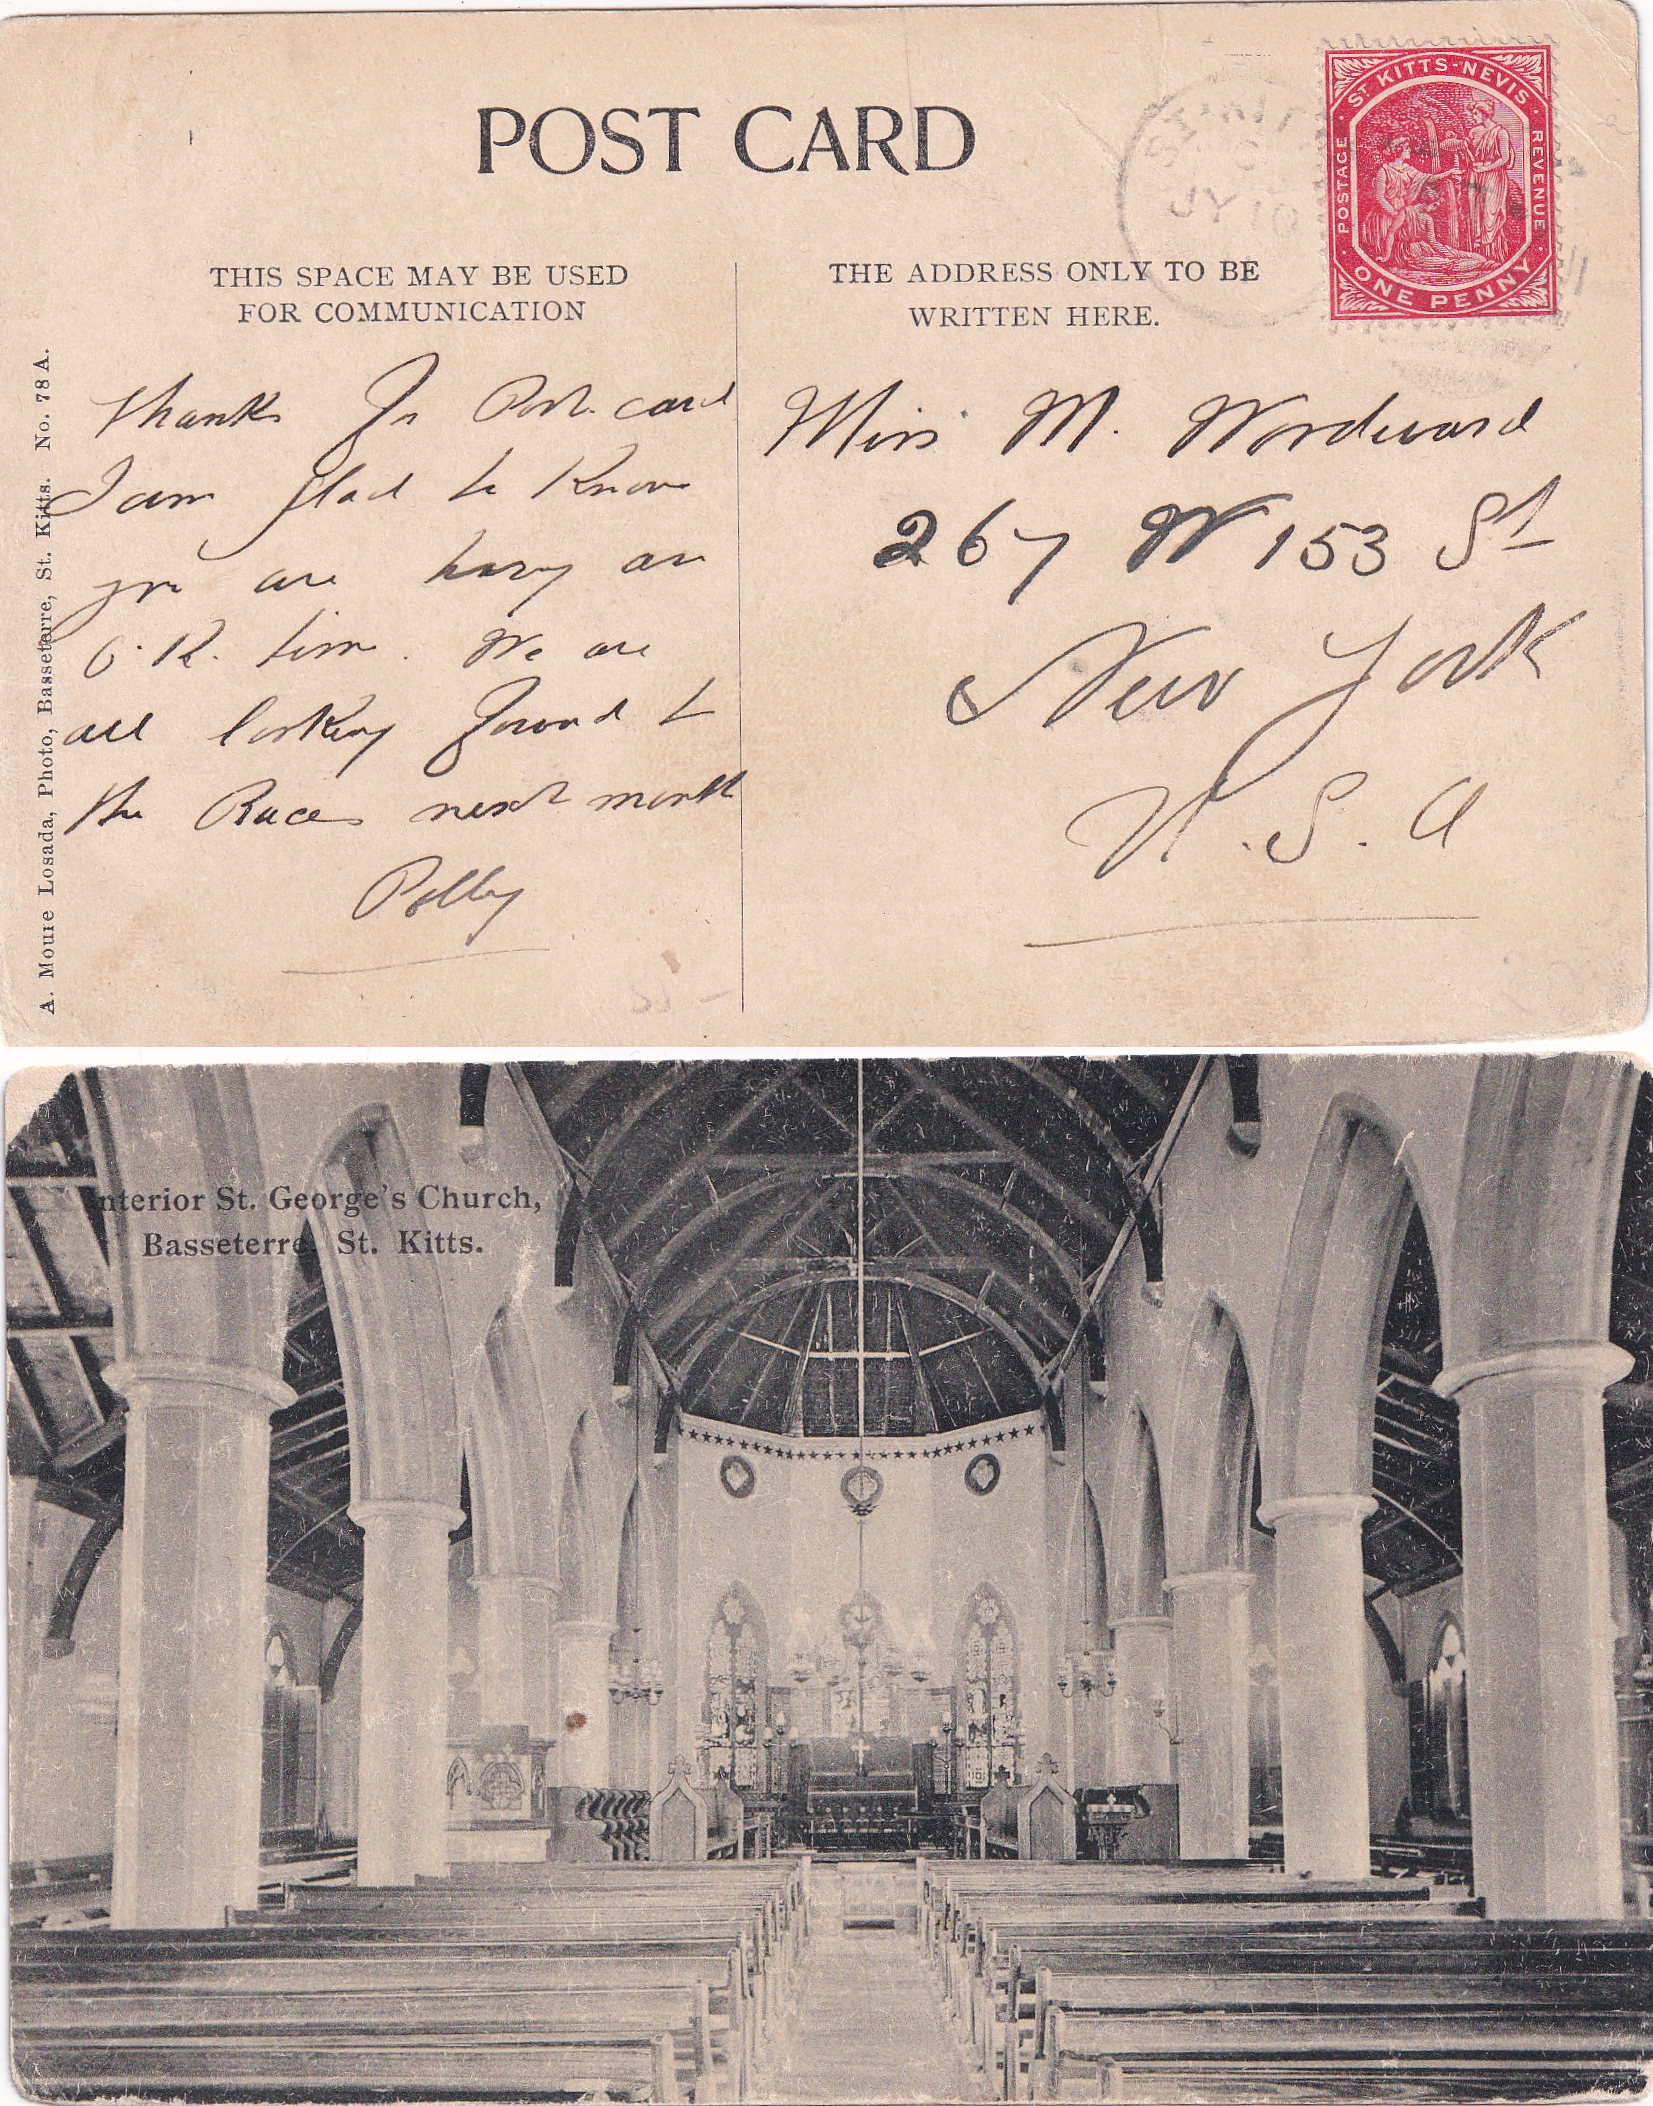 POST CARD
THIS SPACE MAY BE USED
FOR COMMUNICATION
THE ADDRESS ONLY TO BE
WRITTEN HERE.
ST KITTS-NEVIS
POSTAGE
REVENUE
ONE PENNY
ST KITTS
JY 10
A. Moure Losada, Photo, Basseterre, St. Kitts. No. 78 A.
Thanks for Post. card
I am glad to Know
you are having an
O. K. time. We are
all looking forward to
the Races next month
Polly
Miss M. Wordward
267 W 153 St
New York
U. S. A
Interior St. George's Church,
Basseterre, St. Kitts.